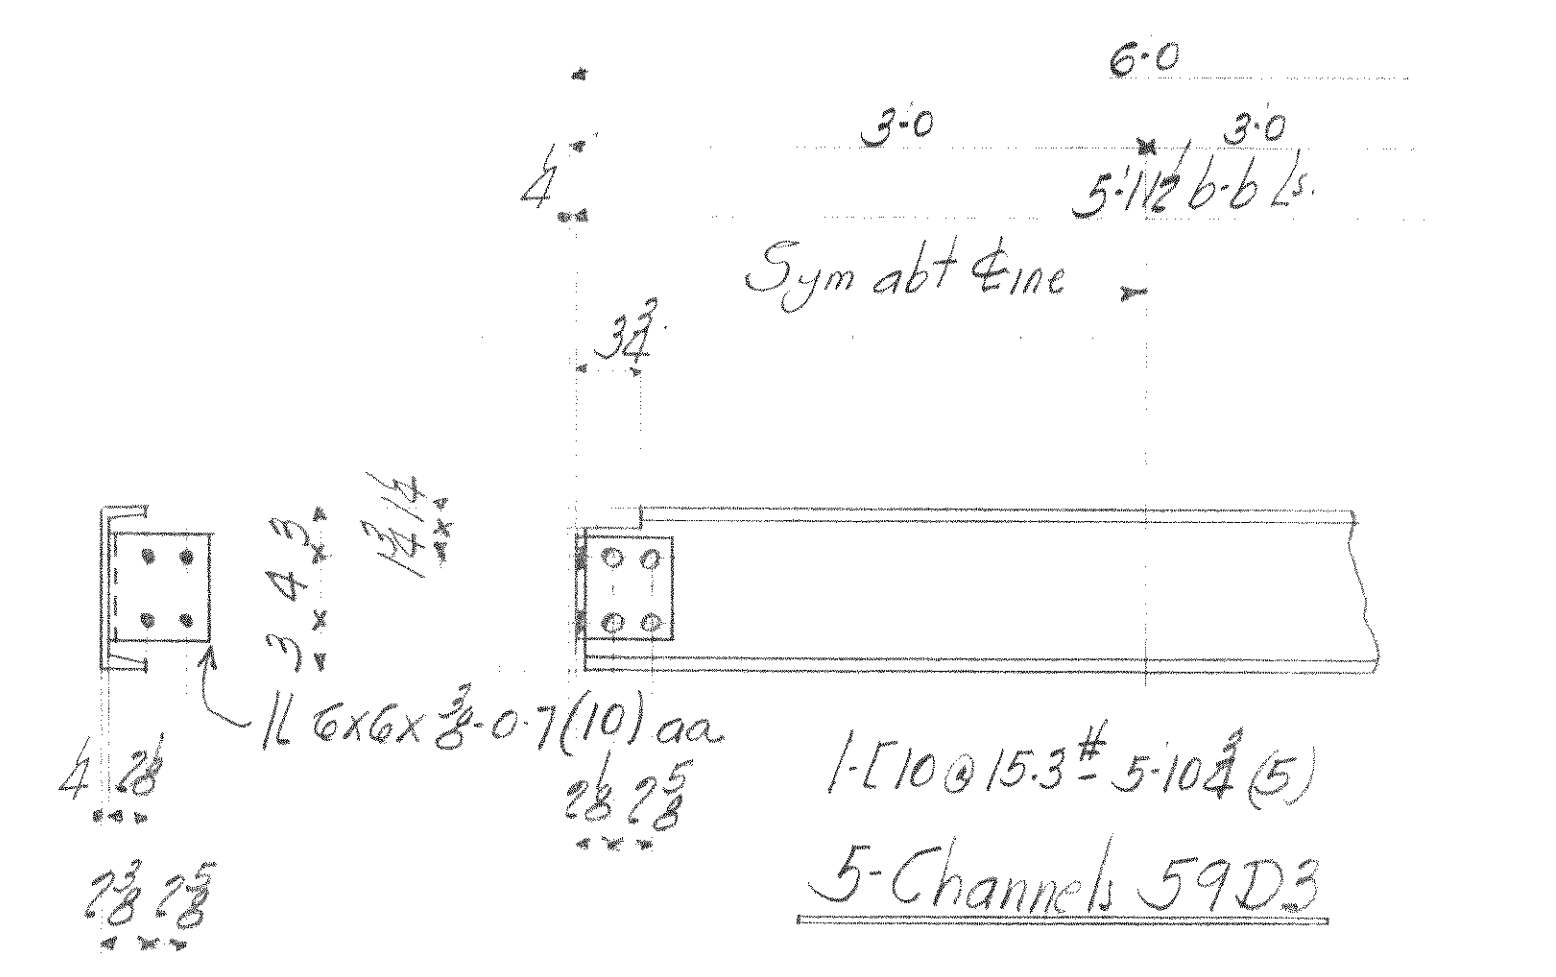 6'-0
3'-0 3'-0
1/4
5'-11 1/2 b-b Ls.
Sym abt ℄ine
3 3/4
3 4 3
1 3/4 1 1/4
1L 6x6x 3/8-0-7(10) aa
1/4 2 1/8
2 3/8 2 5/8
2 1/8 2 5/8
1-[10@15.3# 5'-10 3/4 (5)
5-Channels 59D3